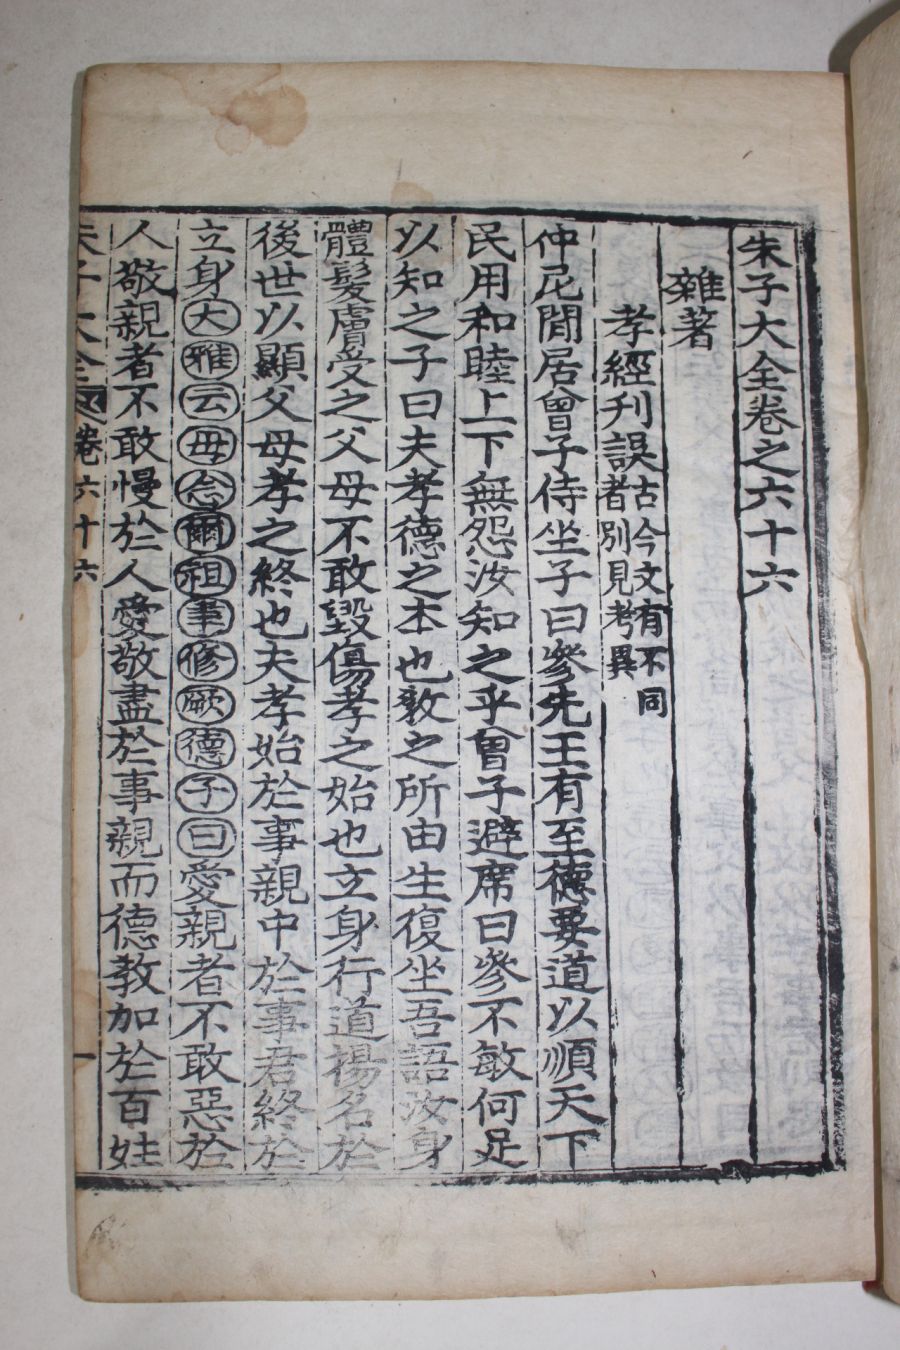 朱子大全卷之六十六
雜著
孝經刊誤古今文有不同者別見考異
仲尼閒居曾子侍坐子曰參先王有至德要道以順天下
民用和睦上下無怨汝知之乎曾子避席曰參不敏何足
以知之子曰夫孝德之本也敎之所由生復坐吾語汝身
體髮膚受之父母不敢毀傷孝之始也立身行道揚名於
後世以顯父母孝之終也夫孝始於事親中於事君終於
立身大雅云毋念爾祖聿修厥德子曰愛親者不敢惡於
人敬親者不敢慢於人愛敬盡於事親而德教加於百姓
朱子大全 卷六十六 一